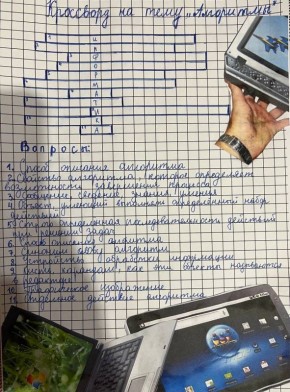 Кроссворд на тему "Алгоритмы"
И
Н
Ф
О
Р
М
А
Т
И
К
А
Вопросы:
1. Способ описания алгоритма
2. Свойство алгоритма, которое определяет
возможность завершения процесса
3. сведения, знания, умения
4. Объект, умеющий выполнять определённый набор
действий
5. Строго определённая последовательность действий
при решении задач
6. Способ описания алгоритма
7. алгоритм
8. Устройство обработки информации
9. как эти объекты называются
редактор
10. Графическое изображение
11. Отдельное действие алгоритма